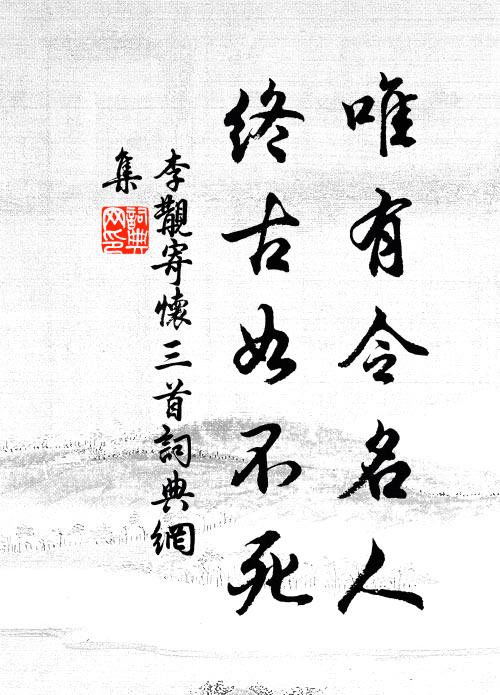 唯有令名人
終古如不死
李觀寄懷三首詞典網
集
詞典
网印